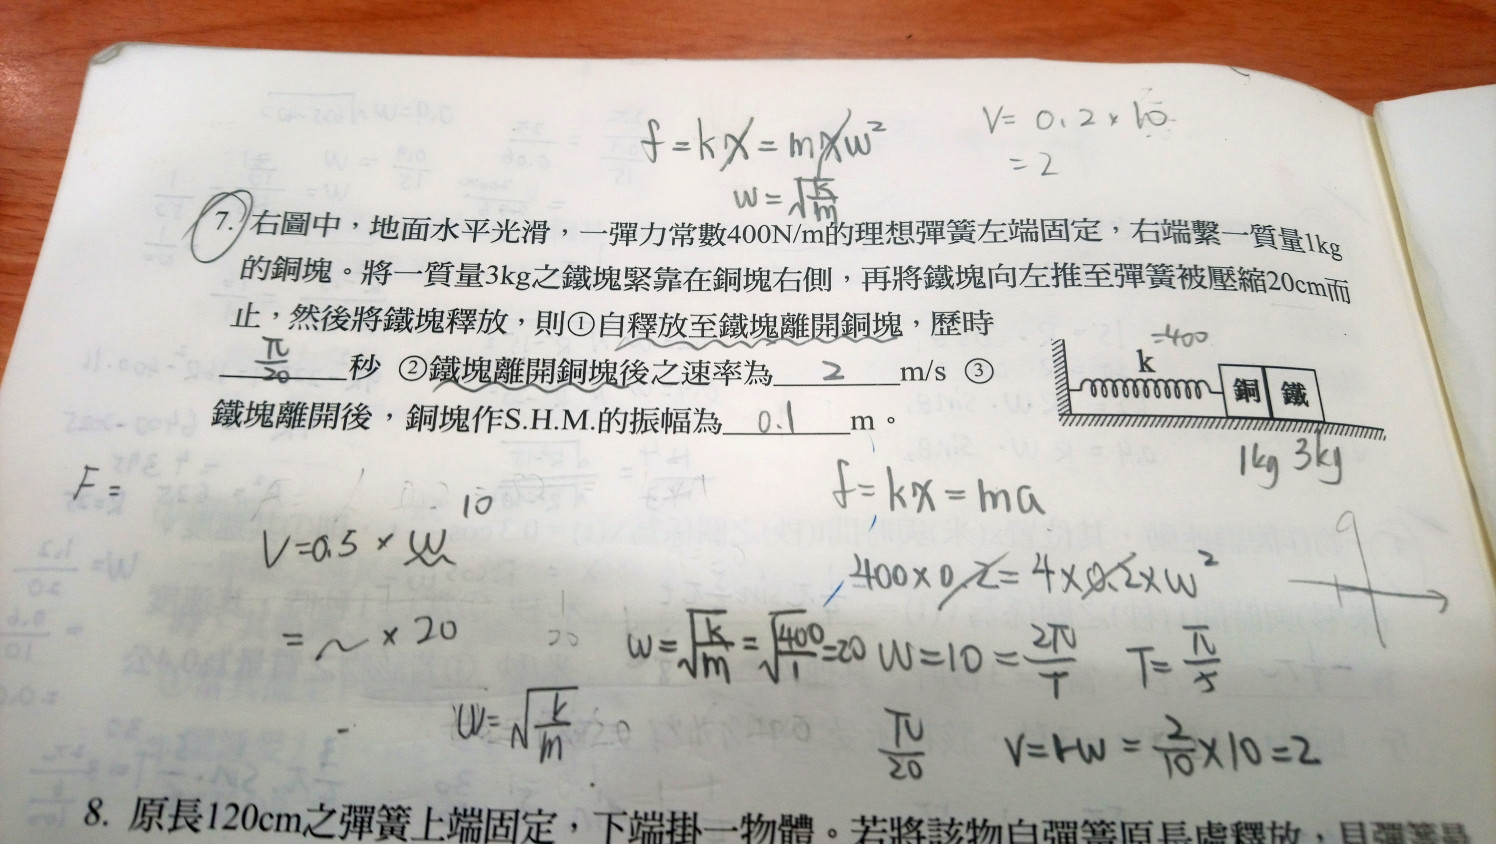 f=kx=mxw²
V= 0.2×10
=2
w=√k/m
7. 右圖中，地面水平光滑，一彈力常數400N/m的理想彈簧左端固定，右端繫一質量1kg
的銅塊。將一質量3kg之鐵塊緊靠在銅塊右側，再將鐵塊向左推至彈簧被壓縮20cm而
止，然後將鐵塊釋放，則①自釋放至鐵塊離開銅塊，歷時
π/20 秒 ②鐵塊離開銅塊後之速率為 2 m/s ③
鐵塊離開後，銅塊作S.H.M.的振幅為 0.1 m。
=400
k
銅 鐵
1kg 3kg
F=
f=kx=ma
10
V=0.5×w
400×0.2=4×0.2×w²
=~×20
w=√k/m=√400/1=20
W=10=2π/T T=π/5
w=√k/m
π/20
V=rw=2/10×10=2
8. 原長120cm之彈簧上端固定，下端掛一物體。若將該物自彈簧原長處釋放，且彈簧最